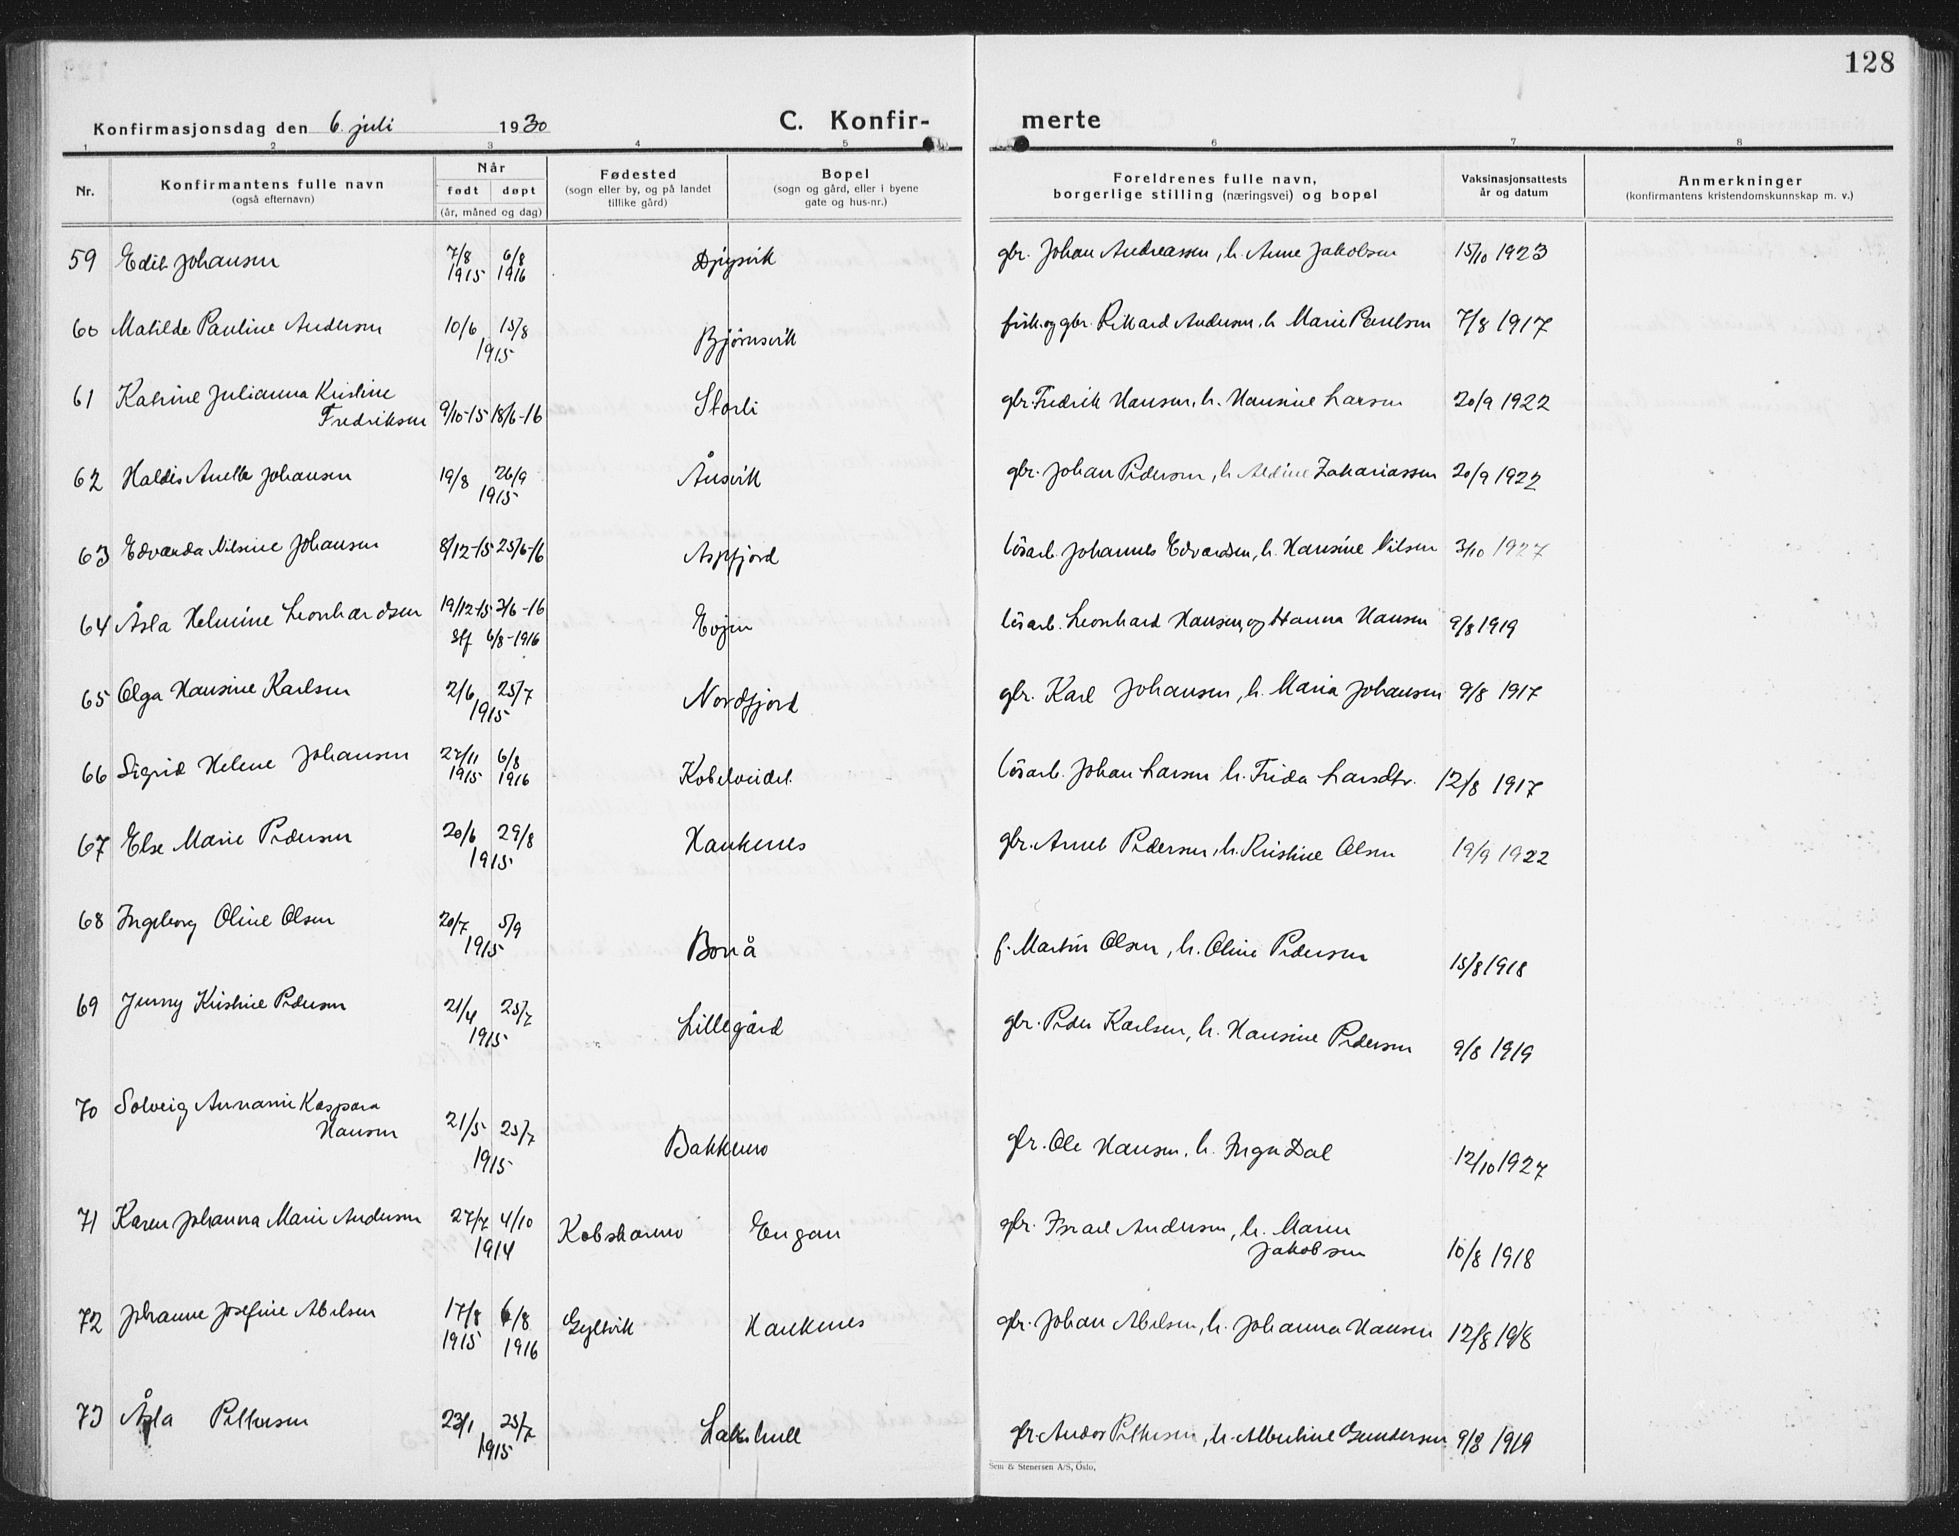 128
Konfirmasjonsdag den 6. juli 1930
C. Konfir-
merte
1 2 3 4 5 6 7 8
Nr.
Konfirmantens fulle navn
(også efternavn)
Når
født døpt
(år, måned og dag)
Fødested
(sogn eller by, og på landet
tillike gård)
Bopel
(sogn og gård, eller i byene
gate og hus-nr.)
Foreldrenes fulle navn,
borgerlige stilling (næringsvei) og bopel
Vaksinasjonsattests
år og datum
Anmerkninger
(konfirmantens kristendomskunnskap m. v.)
59 Edit Johansen 7/8 1915 6/8 1916 gbr. Johan Andreassen, h. Anne Jakobsen 15/10 1923
60 Matilde Pauline Andersen 10/6 15/8 1915 Bjørnsvik fisk. og gbr. Rikard Andersen, h. Marie Paulsen 7/8 1917
61 Katrine Julianna Kristine
Fredriksen 9/10-15 18/6-16 Storli gbr. Fredrik Hansen, h. Hansine Larsen 20/9 1922
62 Haldis Anette Johansen 19/8 26/9 1915 Ånsvik gbr. Johan Pedersen, h. Aldine Zakariassen 20/9 1922
63 Edvarda Nilsine Johansen 8/12-15 25/6-16 Aspfjord løsarb. Johannes Edvardsen, h. Hansine Nilsen 3/10 1927
64 Åsla Helmine Leonhardsen 19/12-15 2/6-16
stf 6/8-1916 Evjen løsarb. Leonhard Hansen, og Hanna Hansen 9/8 1919
65 Olga Hansine Karlsen 2/6 25/7 1915 Nordfjord gbr. Karl Johansen, h. Maria Johansen 9/8 1917
66 Sigrid Helene Johansen 27/11 1915 6/8 1916 Kobelveidet løsarb. Johan Larsen h. Frida Larsdtr. 12/8 1917
67 Else Marie Pedersen 20/6 29/8 1915 Haukenes gbr. Arnet Pedersen, h. Kristine Olsen 19/9 1922
68 Ingeborg Oline Olsen 20/7 5/9 1915 Bonå f. Martin Olsen, h. Oline Pedersen 15/8 1918
69 Jenny Kristine Pedersen 21/4 25/7 1915 Lillegård gbr. Peder Karlsen, h. Hansine Pedersen 9/8 1919
70 Solveig Annanie Kaspara
Hansen 21/5 25/7 1915 Bakkemo gbr. Ole Hansen, h. Inga Dal 12/10 1927
71 Karen Johanna Marie Andersen 27/7 4/10 1914 Kobskarmo Engan gbr. Israel Andersen, h. Maren
Jakobsen 10/8 1918
72 Johanne Josefine Abelsen 17/8 1915 6/8 1916 Gyltvik Haukenes gbr. Johan Abelsen, h. Johanna Hansen 12/8 1918
73 Åsla Pettersen 23/1 25/7 1915 Lakshull gbr. Andor Pettersen, h. Albertine Gundersen 9/8 1919
Sem & Stenersen A/S, Oslo.